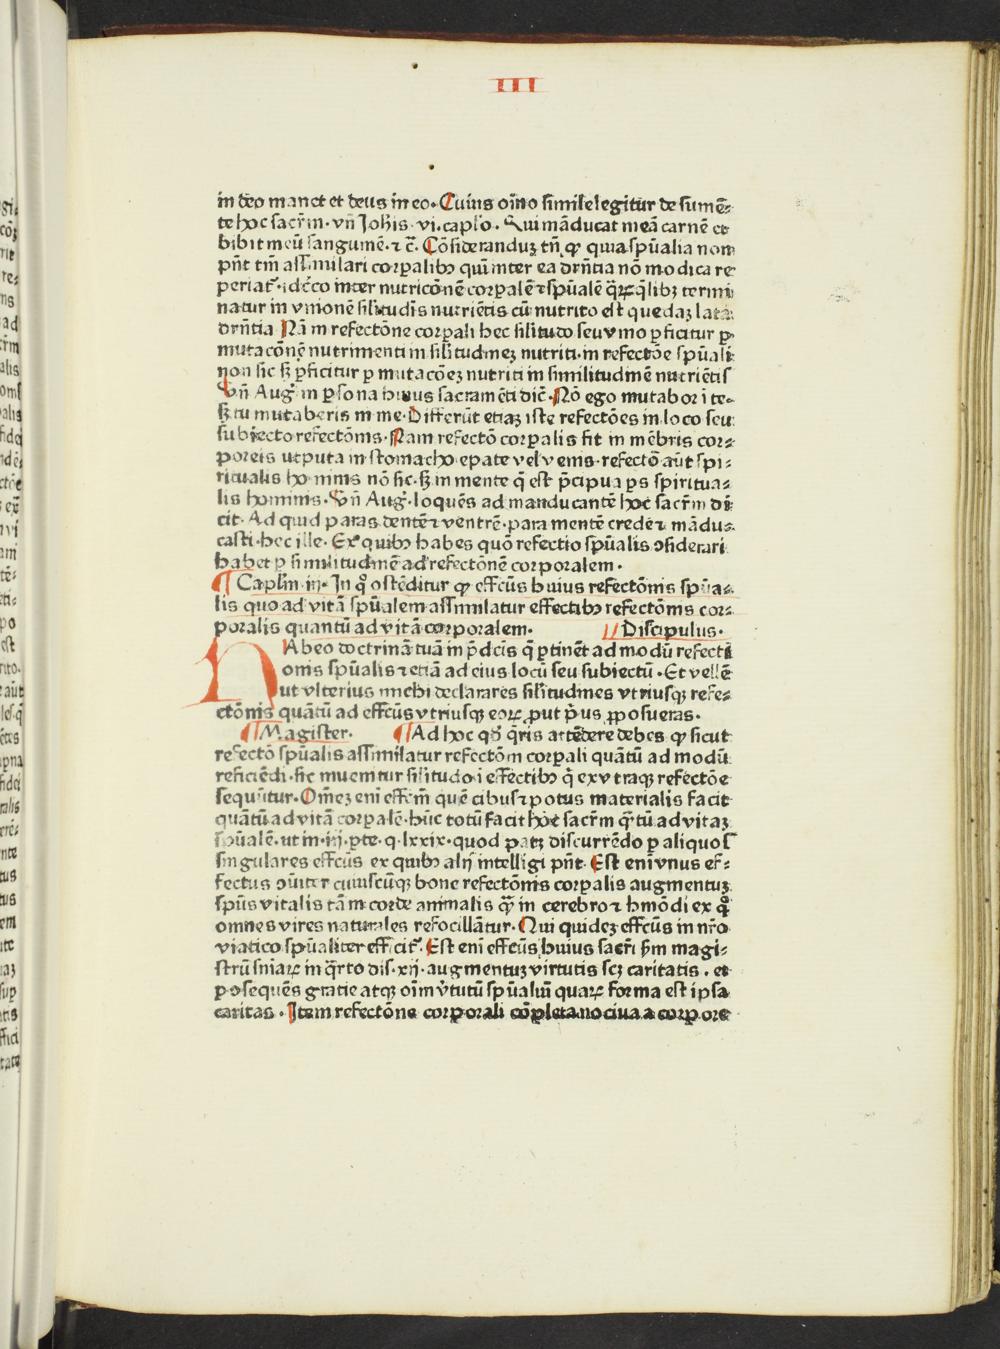 III
in deo manet et deus in eo. Cuius oīno simile legitur de sumē⸗
te hoc sacrm̄. vn̄ Johis. vi. caplo. Qui māducat meā carnē et
bibit meū sanguinē. ⁊ c̄. Cōsideranduʒ tn̄ ꝙ quia spūalia non
pn̄t tm̄ assimilari corꝑalibꝫ quin inter ea drn̄tia nō modica re
periat᷑. idcō inter nutricōnē corꝑalē ⁊ spūalē q̄ꝝ q̄libꝫ termi
natur in vnionē silitudīs nutriētis cū nutrito est quedaʒ lata
drn̄tia Nā in refectōne corꝑali hec silitudo seu vnio ꝑficitur ꝑ
mutacōnē nutrimenti in silitudineʒ nutriti. in refectōe spūali
non sic sꝫ ꝑficitur ꝑ mutacōeʒ nutriti in similitudinē nutriētis
Vn̄ Aug᷑ in ꝑsona huius sacramēti dic̄. Nō ego mutabor ī te.
sꝫ tu mutaberis in me. Differūt etiaʒ iste refectōes in loco seu
subiecto refectōnis. Nam refectō corꝑalis fit in mēbris cor⸗
poreis utputa in stomacho epate vel venis. refectō aūt spi⸗
ritualis hominis nō sic. sꝫ in mente q̄ est p̄cipua ꝑs spiritua⸗
lis hominis. Vn̄ Aug᷑. loquēs ad manducantē hoc sacrm̄ di
cit. Ad quid paras dentē ⁊ ventrē. para mentē crede ⁊ mādu⸗
casti. hec ille. Ex quibꝫ habes quō refectio spūalis ↄsiderari
habet ꝑ similitudinē ad refectōnē corporalem.
¶ Caplm̄ iij. In qͦ ostēditur ꝙ effcūs huius refectōnis spūa⸗
lis quo ad vitā spūalem assimilatur effectibꝫ refectōnis cor⸗
poralis quantū ad vitā corporalem. Discipulus.
HAbeo doctrinā tuā in p̄dcis q̄ ꝑtinēt ad modū refecti
onis spūalis ⁊ etiā ad eius locū seu subiectū. Et vellē
ut vlterius michi declarares silitudines vtriusqꝫ refe⸗
ctōnis quātū ad effcūs vtriusqꝫ eoꝝ ꝓut p̄us ꝓposueras.
¶ Magister. ¶ Ad hoc qd̄ q̄ris attēdere debes ꝙ sicut
refectō spūalis assimilatur refectōni corꝑali quātū ad modū
reficiēdi. sic inuenitur silitudo ī effectibꝫ q̄ ex vtraqꝫ refectōe
sequūtur. Om̄eʒ enī effcm̄ quē cibus ⁊ potus materialis facit
quātū ad vitā corꝑalē. hūc totū facit hoc sacrm̄ q̄tū ad vitaʒ
spūalē. ut in. iij. ꝑte. q. lxxix. quod patʒ discurrēdo ꝑ aliquos
singulares effcūs ex quibꝫ alij intelligi pn̄t. Est enī vnus ef⸗
fectus ↄūiter cuiuscūqꝫ bone refectōnis corꝑalis augmentuʒ
spūs vitalis tā in corde animalis q̄ꝫ in cerebro ⁊ hmōdi ex qͦ
omnes vires naturales refocillātur. Qui quideʒ effcūs in nr̄o
viatico spūaliter efficit᷑. Est enī effcūs huius sacri ẜm magi⸗
strū sniaꝝ in q̄rto dis. xij. augmentuʒ virtutis scʒ caritatis. et
ꝑ ↄsequēs gratie atqꝫ oīm v̄tutū spūaliū quaꝝ forma est ipsa
caritas. Item refectōne corporali cōpleta nociua a corpore